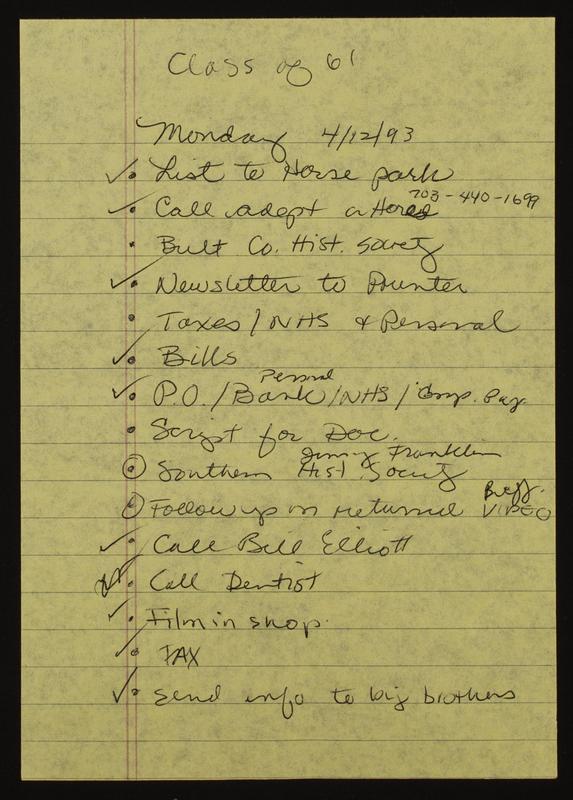 Class of 61
Monday 4/12/93
✓• List to Horse park
703-440-1699
✓• Call adopt a Horse
• Bult Co. Hist. Society
✓• Newsletter to Printer
• Taxes / NHS & Personal
✓• Bills
Personal
✓• P.O. / Bank / NHS / Comp. Pay
• Script for Doc.
Jimmy Franklin
• Southern Hist. Society
Buff.
• Follow up on returned VIDEO
✓• Call Bill Elliott
✓• Call Dentist
✓• Film in shop.
✓• FAX
✓• send info to big brothers